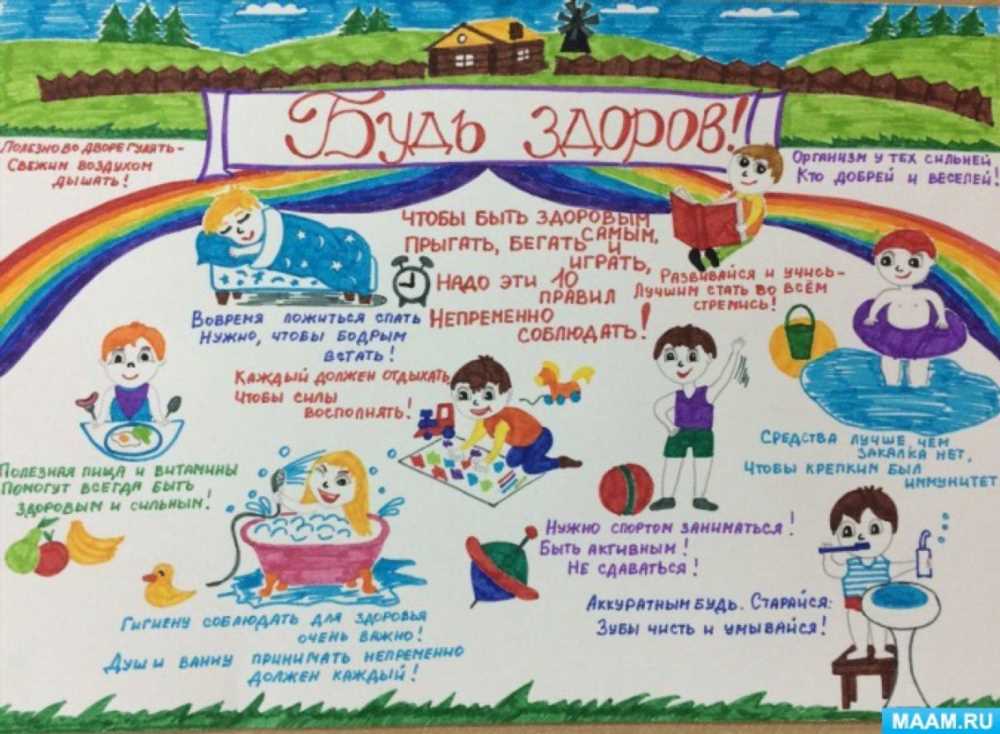 Будь здоров!
Полезно во дворе гулять-
Свежим воздухом
дышать!
Организм у тех сильней
Кто добрей и веселей!
Чтобы быть здоровым
самым,
Прыгать, бегать и
играть,
Надо эти 10
правил
Непременно
соблюдать!
Развивайся и учись-
Лучшим стать во всём
стремись!
Вовремя ложиться спать
Нужно, чтобы бодрым
встать!
Каждый должен отдыхать,
Чтобы силы
восполнять!
Средства лучше, чем
закалка нет,
Чтобы крепким был
иммунитет
Полезная пища и витамины
Помогут всегда быть
здоровым и сильным!
Нужно спортом заниматься!
Быть активным!
Не сдаваться!
Аккуратным будь. Старайся:
Зубы чисть и умывайся!
Гигиену соблюдать для здоровья
очень важно!
Душ и ванну принимать непременно
должен каждый!
MAAM.RU